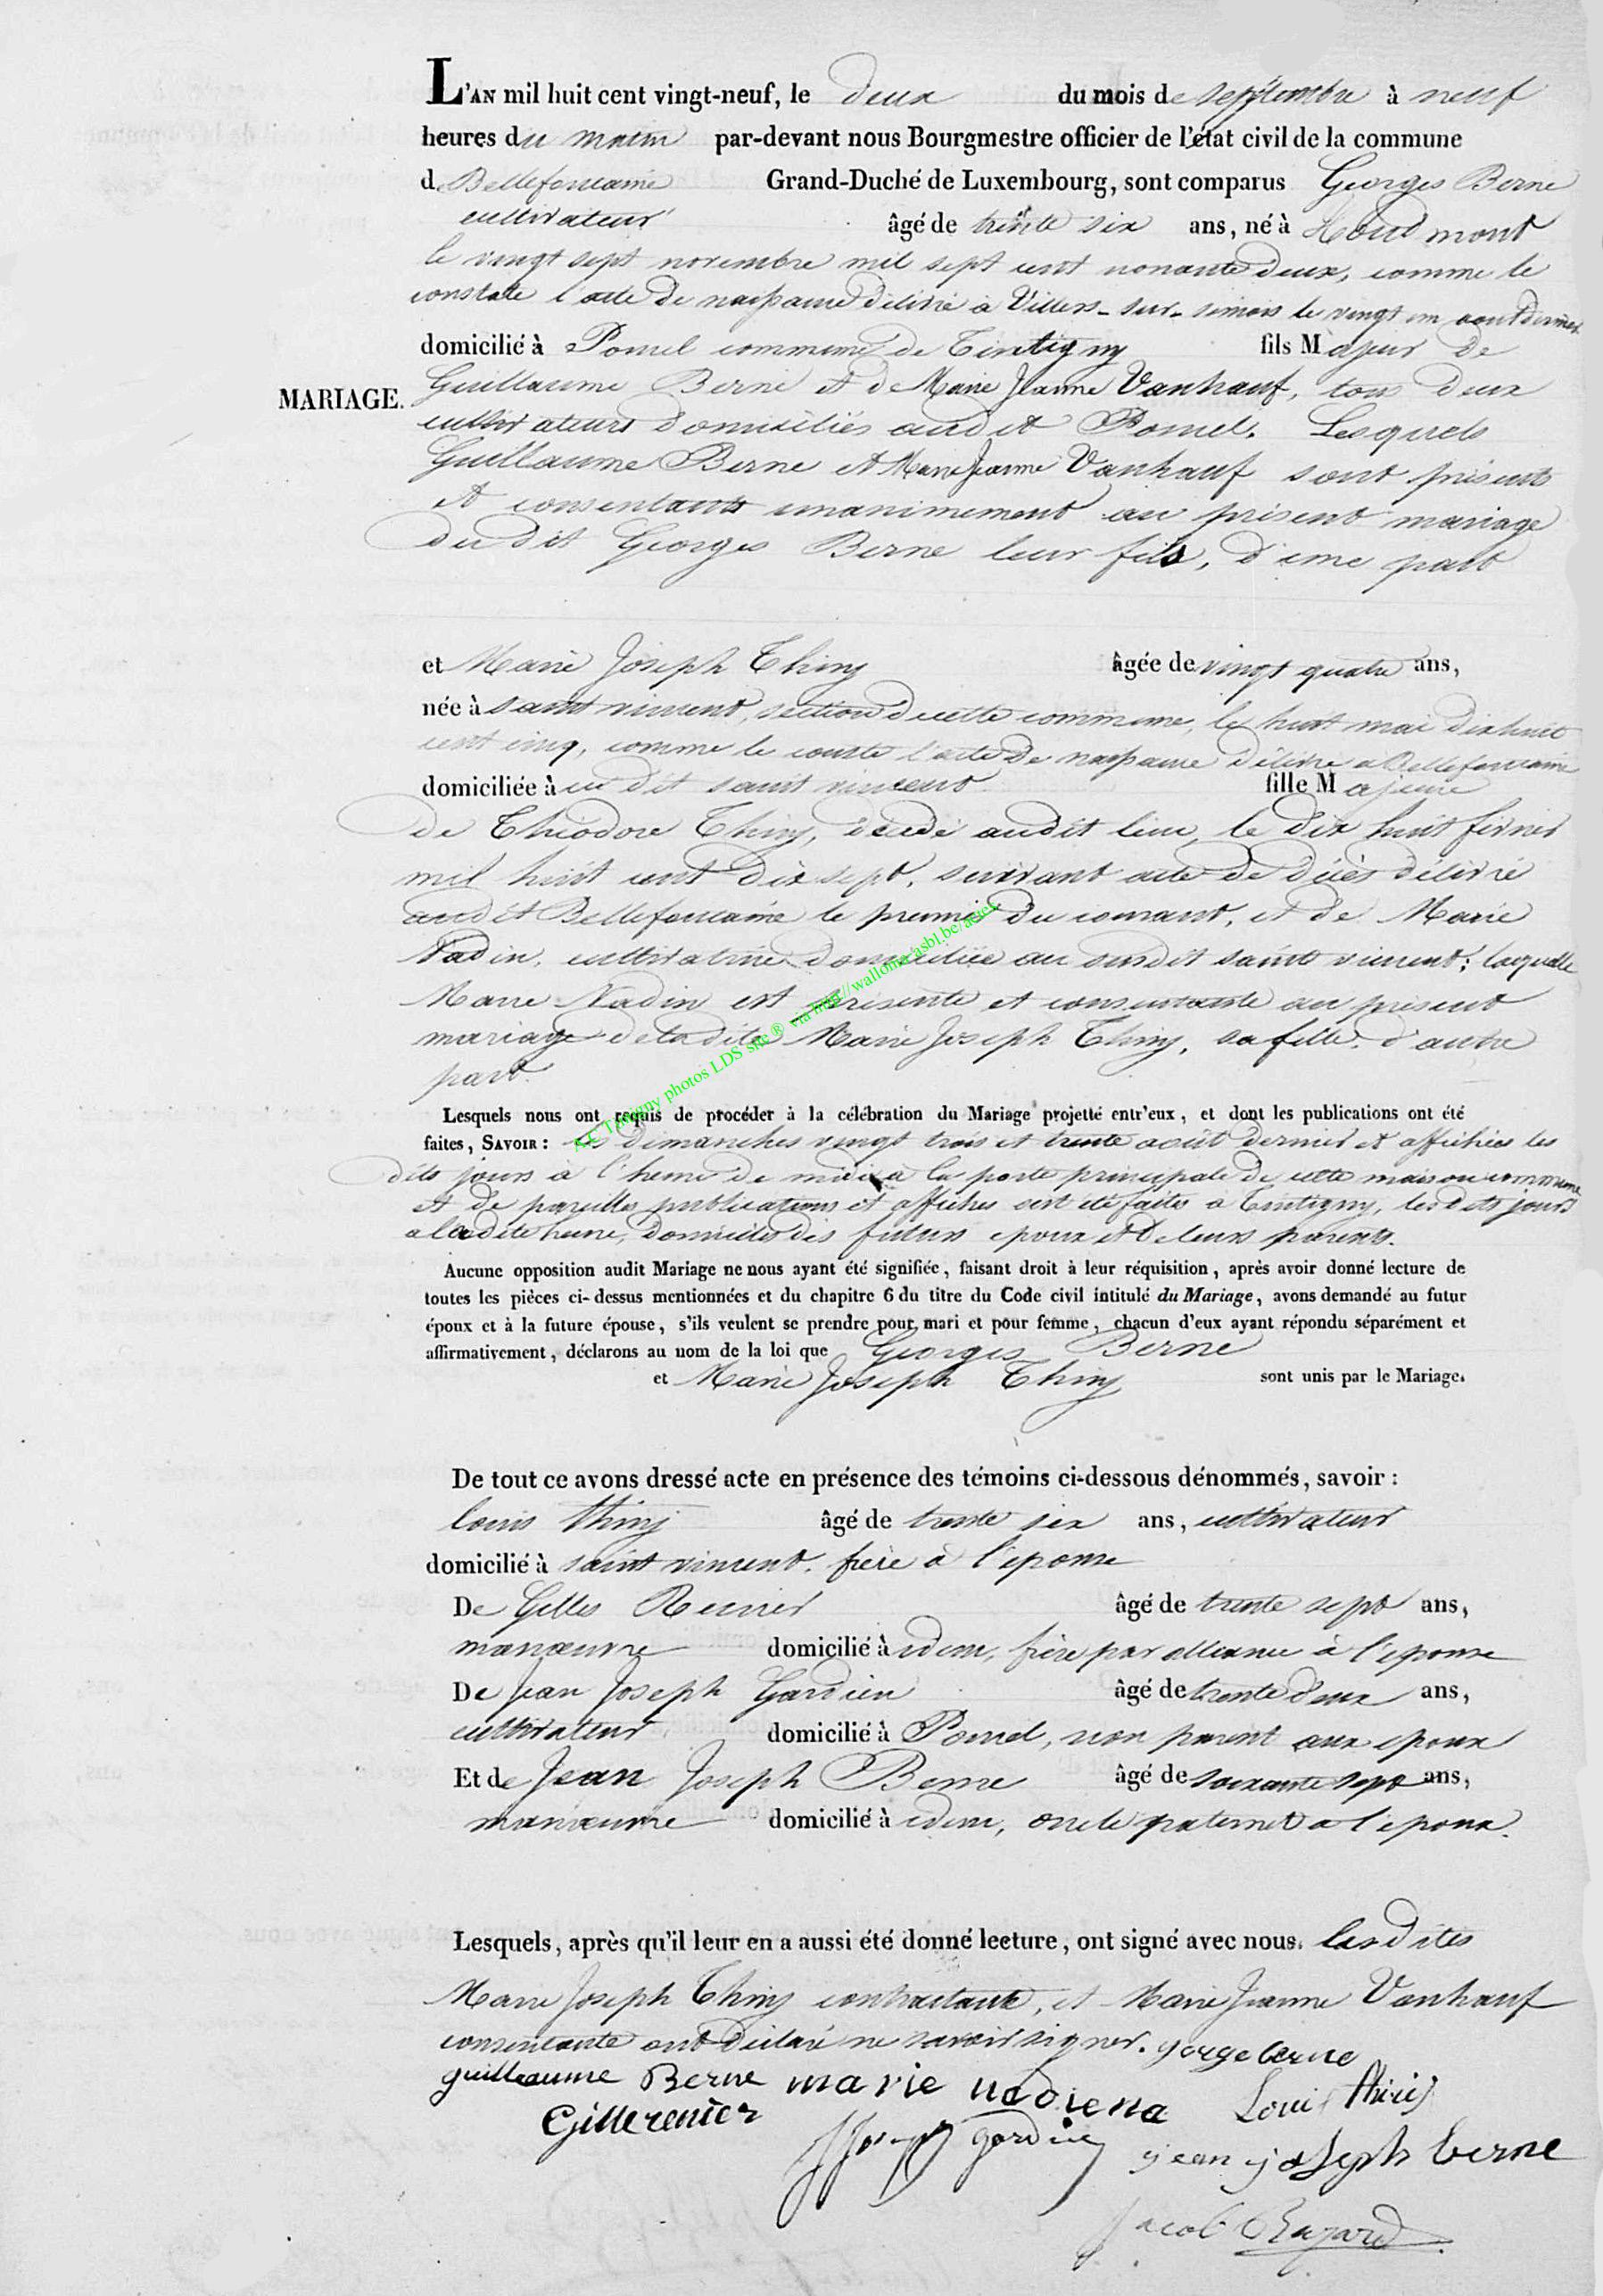 L'AN mil huit cent vingt-neuf, le deux du mois de septembre à neuf
heures du matin par-devant nous Bourgmestre officier de l'état civil de la commune
de Bellefontaine Grand-Duché de Luxembourg, sont comparus Georges Berne
cultivateur âgé de trente six ans, né à Houdmont
le vingt sept novembre mil sept cent nonante deux, comme le
constate l'acte de naissance délivré à Villers-sur-Semois le vingt un aout dernier
domicilié à Poncel commune de Tintigny fils Majeur de
MARIAGE.
Guillaume Berne et de Marie Jeanne Vanhauf, tous deux
cultivateurs domiciliés audit Poncel. Lesquels
Guillaume Berne et Marie Jeanne Vanhauf sont présents
et consentants unanimement au présent mariage
du dit Georges Berne leur fils, d'une part
et Marie Joseph Thiry âgée de vingt quatre ans,
née à saint vincent, section de cette commune, le huit mai dix huit
cent cinq, comme le conste l'acte de naissance délivré à Bellefontaine
domiciliée à au dit saint vincent fille Majeure
de Théodore Thiry, décédé audit lieu, le dix huit février
mil huit cent dix sept, suivant acte de décès délivré
audit Bellefontaine le premier du courant, et de Marie
Nadin, cultivatrice domiciliée au susdit saint vincent; laquelle
Marie Nadin est présente et consentante au présent
mariage de la dite Marie Joseph Thiry, sa fille, d'autre
part.
A.E Tintigny photos LDS site® via http://wallonia-asbl.be/actes
Lesquels nous ont requis de procéder à la célébration du Mariage projetté entr'eux, et dont les publications ont été
faites, SAVOIR : les dimanches vingt trois et trente août dernier et affichées les
dits jours à l'heure de midi à la porte principale de cette maison commune
et de pareilles publications et affiches ont été faites a Tintigny, les dits jours
a la dite heure, domiciles des futurs epoux et de leurs parents.
Aucune opposition audit Mariage ne nous ayant été signifiée, faisant droit à leur réquisition, après avoir donné lecture de
toutes les pièces ci-dessus mentionnées et du chapitre 6 du titre du Code civil intitulé du Mariage, avons demandé au futur
époux et à la future épouse, s'ils veulent se prendre pour mari et pour femme, chacun d'eux ayant répondu séparément et
affirmativement, déclarons au nom de la loi que Georges Berne
et Marie Joseph Thiry sont unis par le Mariage.
De tout ce avons dressé acte en présence des témoins ci-dessous dénommés, savoir :
Louis Thiry âgé de trente six ans, cultivateur
domicilié à saint vincent, frère à l'epouse
De Gilles Renier âgé de trente sept ans,
manœuvre domicilié à idem, frère par alliance à l'epouse
De Jean Joseph Gardien âgé de trente deux ans,
cultivateur domicilié à Poncel, non parent aux epoux
Et de Jean Joseph Berne âgé de soixante sept ans,
manœuvre domicilié à idem, oncle paternel a l'epoux.
Lesquels, après qu'il leur en a aussi été donné lecture, ont signé avec nous. Les dites
Marie Joseph Thiry contractante, et Marie Jeanne Vanhauf
consentante ont déclaré ne savoir signer. gorge berne
guilleaume Berne marie nadiena Louis thiry
Gille renier gardien jean joseph berne
Jacob